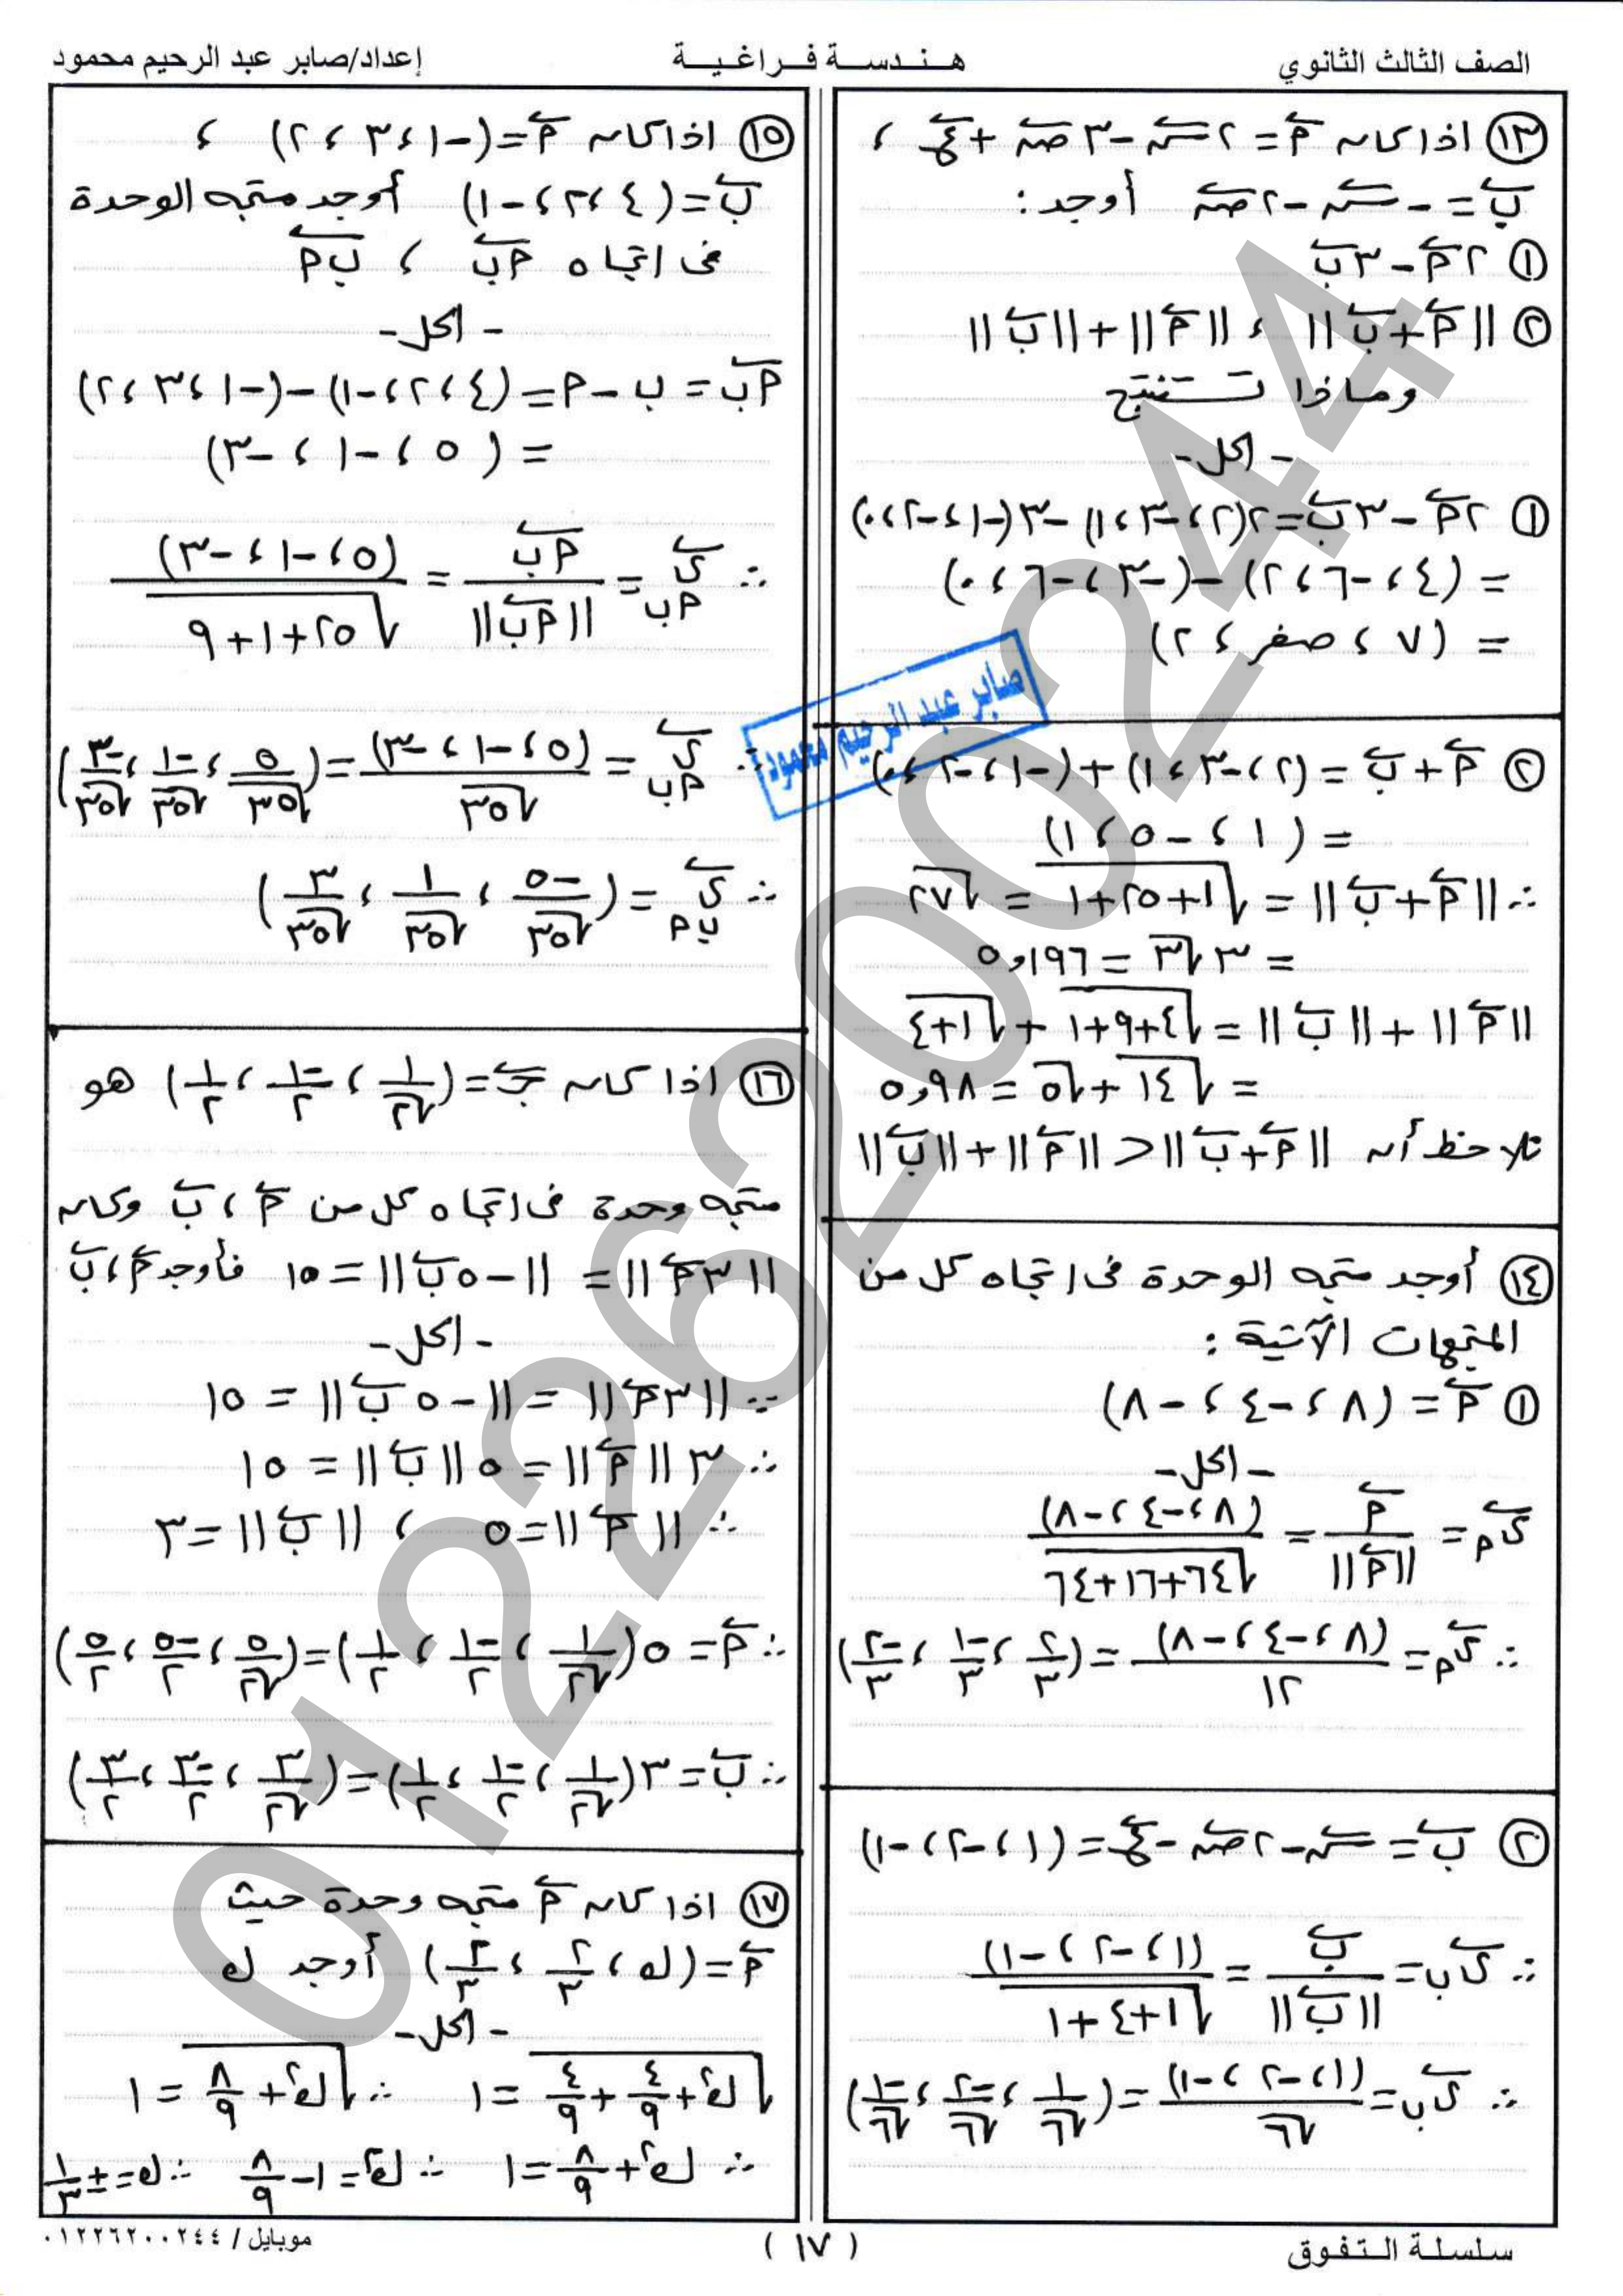 الصف الثالث الثانوي
هندسة فراغية
إعداد/صابر عبد الرحيم محمود
١٣ اذا كان م⃗ = ٢س⃗ - ٣ص⃗ + ع⃗ ،
ب⃗ = -س⃗ - ٢ص⃗ أوجد :
١ ٢م⃗ - ٣ب⃗
٢ ||م⃗ + ب⃗|| ، ||م⃗|| + ||ب⃗||
وماذا تستنتج
- الحل -
١ ٢م⃗ - ٣ب⃗ = ٢(٢ ، -٣ ، ١) - ٣(-١ ، -٢ ، ٠)
= (٤ ، -٦ ، ٢) - (-٣ ، -٦ ، ٠)
= (٧ ، صفر ، ٢)
صابر عبد الرحيم محمود
٢ م⃗ + ب⃗ = (٢ ، -٣ ، ١) + (-١ ، -٢ ، ٠)
= (١ ، -٥ ، ١)
∴ ||م⃗ + ب⃗|| = √(١+٢٥+١) = √٢٧
= ٣√٣ = ٥,١٩٦
||م⃗|| + ||ب⃗|| = √(٤+٩+١) + √(١+٤)
= √١٤ + √٥ = ٥,٩٨
نلاحظ أن ||م⃗ + ب⃗|| < ||م⃗|| + ||ب⃗||
١٤ أوجد متجه الوحدة فى اتجاه كل من
المتجهات الآتية :
١ م⃗ = (٨ ، -٤ ، -٨)
- الحل -
ي⃗م = م⃗/||م⃗|| = (٨ ، -٤ ، -٨)/√(٦٤+١٦+٦٤)
∴ ي⃗م = (٨ ، -٤ ، -٨)/١٢ = (٢/٣ ، -١/٣ ، -٢/٣)
٢ ب⃗ = س⃗ - ٢ص⃗ - ع⃗ = (١ ، -٢ ، -١)
∴ ي⃗ب = ب⃗/||ب⃗|| = (١ ، -٢ ، -١)/√(١+٤+١)
∴ ي⃗ب = (١ ، -٢ ، -١)/√٦ = (١/√٦ ، -٢/√٦ ، -١/√٦)
١٥ اذا كان م⃗ = (-١ ، ٣ ، ٢) ،
ب⃗ = (٤ ، ٢ ، -١) أوجد متجه الوحدة
فى اتجاه م⃗ب ، ب⃗م
- الحل -
م⃗ب = ب - م = (٤ ، ٢ ، -١) - (-١ ، ٣ ، ٢)
= (٥ ، -١ ، -٣)
∴ ي⃗مب = م⃗ب/||م⃗ب|| = (٥ ، -١ ، -٣)/√(٢٥+١+٩)
∴ ي⃗مب = (٥ ، -١ ، -٣)/√٣٥ = (٥/√٣٥ ، -١/√٣٥ ، -٣/√٣٥)
∴ ي⃗بم = (-٥/√٣٥ ، ١/√٣٥ ، ٣/√٣٥)
١٦ اذا كان ج⃗ = (١/√٢ ، -١/٢ ، ١/٢) هو
متجه وحدة فى اتجاه كل من م⃗ ، ب⃗ وكان
||٣م⃗|| = ||-٥ب⃗|| = ١٥ فأوجد م⃗ ، ب⃗
- الحل -
∵ ||٣م⃗|| = ||-٥ب⃗|| = ١٥
∴ ٣||م⃗|| = ٥||ب⃗|| = ١٥
∴ ||م⃗|| = ٥ ، ||ب⃗|| = ٣
∴ م⃗ = ٥(١/√٢ ، -١/٢ ، ١/٢) = (٥/√٢ ، -٥/٢ ، ٥/٢)
∴ ب⃗ = ٣(١/√٢ ، -١/٢ ، ١/٢) = (٣/√٢ ، -٣/٢ ، ٣/٢)
١٧ اذا كان م⃗ متجه وحدة حيث
م⃗ = (ك ، ٢/٣ ، ٢/٣) أوجد ك
- الحل -
√(ك² + ٤/٩ + ٤/٩) = ١ ∴ √(ك² + ٨/٩) = ١
∴ ك² + ٨/٩ = ١ ∴ ك² = ١ - ٨/٩ ∴ ك = ± ١/٣
سلسلة التفوق
( ١٧ )
موبايل / ٠١٢٢٦٢٠٠٢٤٤
01226200244